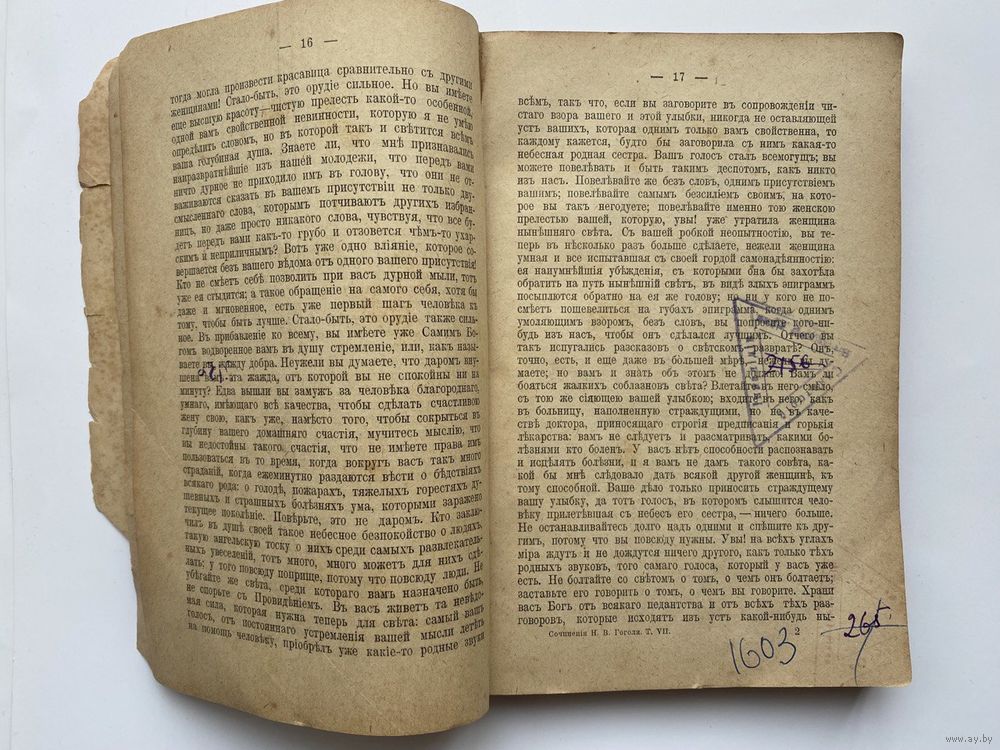 — 16 —
тогда могла произвести красавица сравнительно съ другими
женщинами! Стало-быть, это орудіе сильное. Но вы имѣете
еще высшую красоту—чистую прелесть какой-то особенной,
одной вамъ свойственной невинности, которую я не умѣю
опредѣлить словомъ, но въ которой такъ и свѣтится всѣмъ
ваша голубиная душа. Знаете ли, что мнѣ признавались
наиразвратнѣйшіе изъ нашей молодежи, что передъ вами
ничто дурное не приходило имъ въ голову, что они не от-
важиваются сказать въ вашемъ присутствіи не только дву-
смысленнаго слова, которымъ потчиваютъ другихъ избран-
ницъ, но даже просто никакого слова, чувствуя, что все бу-
детъ передъ вами какъ-то грубо и отзовется чѣмъ-то ухар-
скимъ и неприличнымъ? Вотъ уже одно вліяніе, которое со-
вершается безъ вашего вѣдома отъ одного вашего присутствія!
Кто не смѣетъ себѣ позволить при васъ дурной мысли, тотъ
уже ея стыдится; а такое обращеніе на самого себя, хотя бы
даже и мгновенное, есть уже первый шагъ человѣка къ
тому, чтобы быть лучше. Стало-быть, это орудіе также силь-
ное. Въ прибавленіе ко всему, вы имѣете уже Самимъ Бо-
гомъ водворенное вамъ въ душу стремленіе, или, какъ назы-
ваете вы, жажду добра. Неужели вы думаете, что даромъ вну-
шена вамъ эта жажда, отъ которой вы не спокойны ни на
минуту? Едва вышли вы замужъ за человѣка благороднаго,
умнаго, имѣющаго всѣ качества, чтобы сдѣлать счастливою
жену свою, какъ уже, намѣсто того, чтобы сокрыться въ
глубину вашего домашняго счастія, мучитесь мыслію, что
вы недостойны такого счастія, что не имѣете права имъ
пользоваться въ то время, когда вокругъ васъ такъ много
страданій, когда ежеминутно раздаются вѣсти о бѣдствіяхъ
всякаго рода: о голодѣ, пожарахъ, тяжелыхъ горестяхъ ду-
шевныхъ и страшныхъ болѣзняхъ ума, которыми заражено
текущее поколѣніе. Повѣрьте, это не даромъ. Кто заклю-
чилъ въ душѣ своей такое небесное безпокойство о людяхъ,
такую ангельскую тоску о нихъ среди самыхъ развлекатель-
ныхъ увеселеній, тотъ много, много можетъ для нихъ сдѣ-
лать; у того повсюду поприще, потому что повсюду люди. Не
убѣгайте же свѣта, среди котораго вамъ назначено быть,
не спорьте съ Провидѣніемъ. Въ васъ живетъ та невѣдо-
мая сила, которая нужна теперь для свѣта: самый вашъ
голосъ, отъ постояннаго устремленія вашей мысли летѣть
на помощь человѣку, пріобрѣлъ уже какіе-то родные звуки
— 17 —
всѣмъ, такъ что, если вы заговорите въ сопровожденіи чи-
стаго взора вашего и этой улыбки, никогда не оставляющей
устъ вашихъ, которая однимъ только вамъ свойственна, то
каждому кажется, будто бы заговорила съ нимъ какая-то
небесная родная сестра. Вашъ голосъ сталъ всемогущъ; вы
можете повелѣвать и быть такимъ деспотомъ, какъ никто
изъ насъ. Повелѣвайте же безъ словъ, однимъ присутствіемъ
вашимъ; повелѣвайте самымъ безсиліемъ своимъ, на кото-
рое вы такъ негодуете; повелѣвайте именно тою женскою
прелестью вашей, которую, увы! уже утратила женщина
нынѣшняго свѣта. Съ вашей робкой неопытностью, вы те-
перь въ нѣсколько разъ больше сдѣлаете, нежели женщина
умная и все испытавшая съ своей гордой самонадѣянностію:
ея наиумнѣйшія убѣжденія, съ которыми она бы захотѣла
обратить на путь нынѣшній свѣтъ, въ видѣ злыхъ эпиграммъ
посыплются обратно на ея же голову; но ни у кого не по-
смѣетъ пошевелиться на губахъ эпиграмма, когда однимъ
умоляющимъ взоромъ, безъ словъ, вы попросите кого-ни-
будь изъ насъ, чтобы онъ сдѣлался лучшимъ. Отчего вы
такъ испугались разсказовъ о свѣтскомъ развратѣ? Онъ,
точно, есть, и еще даже въ большей мѣрѣ, нежели вы ду-
маете; но вамъ и знать объ этомъ не должно. Вамъ ли
бояться жалкихъ соблазновъ свѣта? Влетайте въ него смѣло,
съ тою же сіяющею вашей улыбкою; входите въ него, какъ
въ больницу, наполненную страждущими, но не въ каче-
ствѣ доктора, приносящаго строгія предписанія и горькія
лѣкарства: вамъ не слѣдуетъ и разсматривать, какими бо-
лѣзнями кто боленъ. У васъ нѣтъ способности распознавать
и исцѣлять болѣзни, и я вамъ не дамъ такого совѣта, ка-
кой бы мнѣ слѣдовало дать всякой другой женщинѣ, къ
тому способной. Ваше дѣло только приносить страждущему
вашу улыбку, да тотъ голосъ, въ которомъ слышится чело-
вѣку прилетѣвшая съ небесъ его сестра, — ничего больше.
Не останавливайтесь долго надъ одними и спѣшите къ дру-
гимъ, потому что вы повсюду нужны. Увы! на всѣхъ углахъ
міра ждутъ и не дождутся ничего другого, какъ только тѣхъ
родныхъ звуковъ, того самаго голоса, который у васъ уже
есть. Не болтайте со свѣтомъ о томъ, о чемъ онъ болтаетъ;
заставьте его говорить о томъ, о чемъ вы говорите. Храни
васъ Богъ отъ всякаго педантства и отъ всѣхъ тѣхъ раз-
говоровъ, которые исходятъ изъ устъ какой-нибудь ны-
Сочиненія Н. В. Гоголя. Т. VII. 2
1603
265
www.ay.by